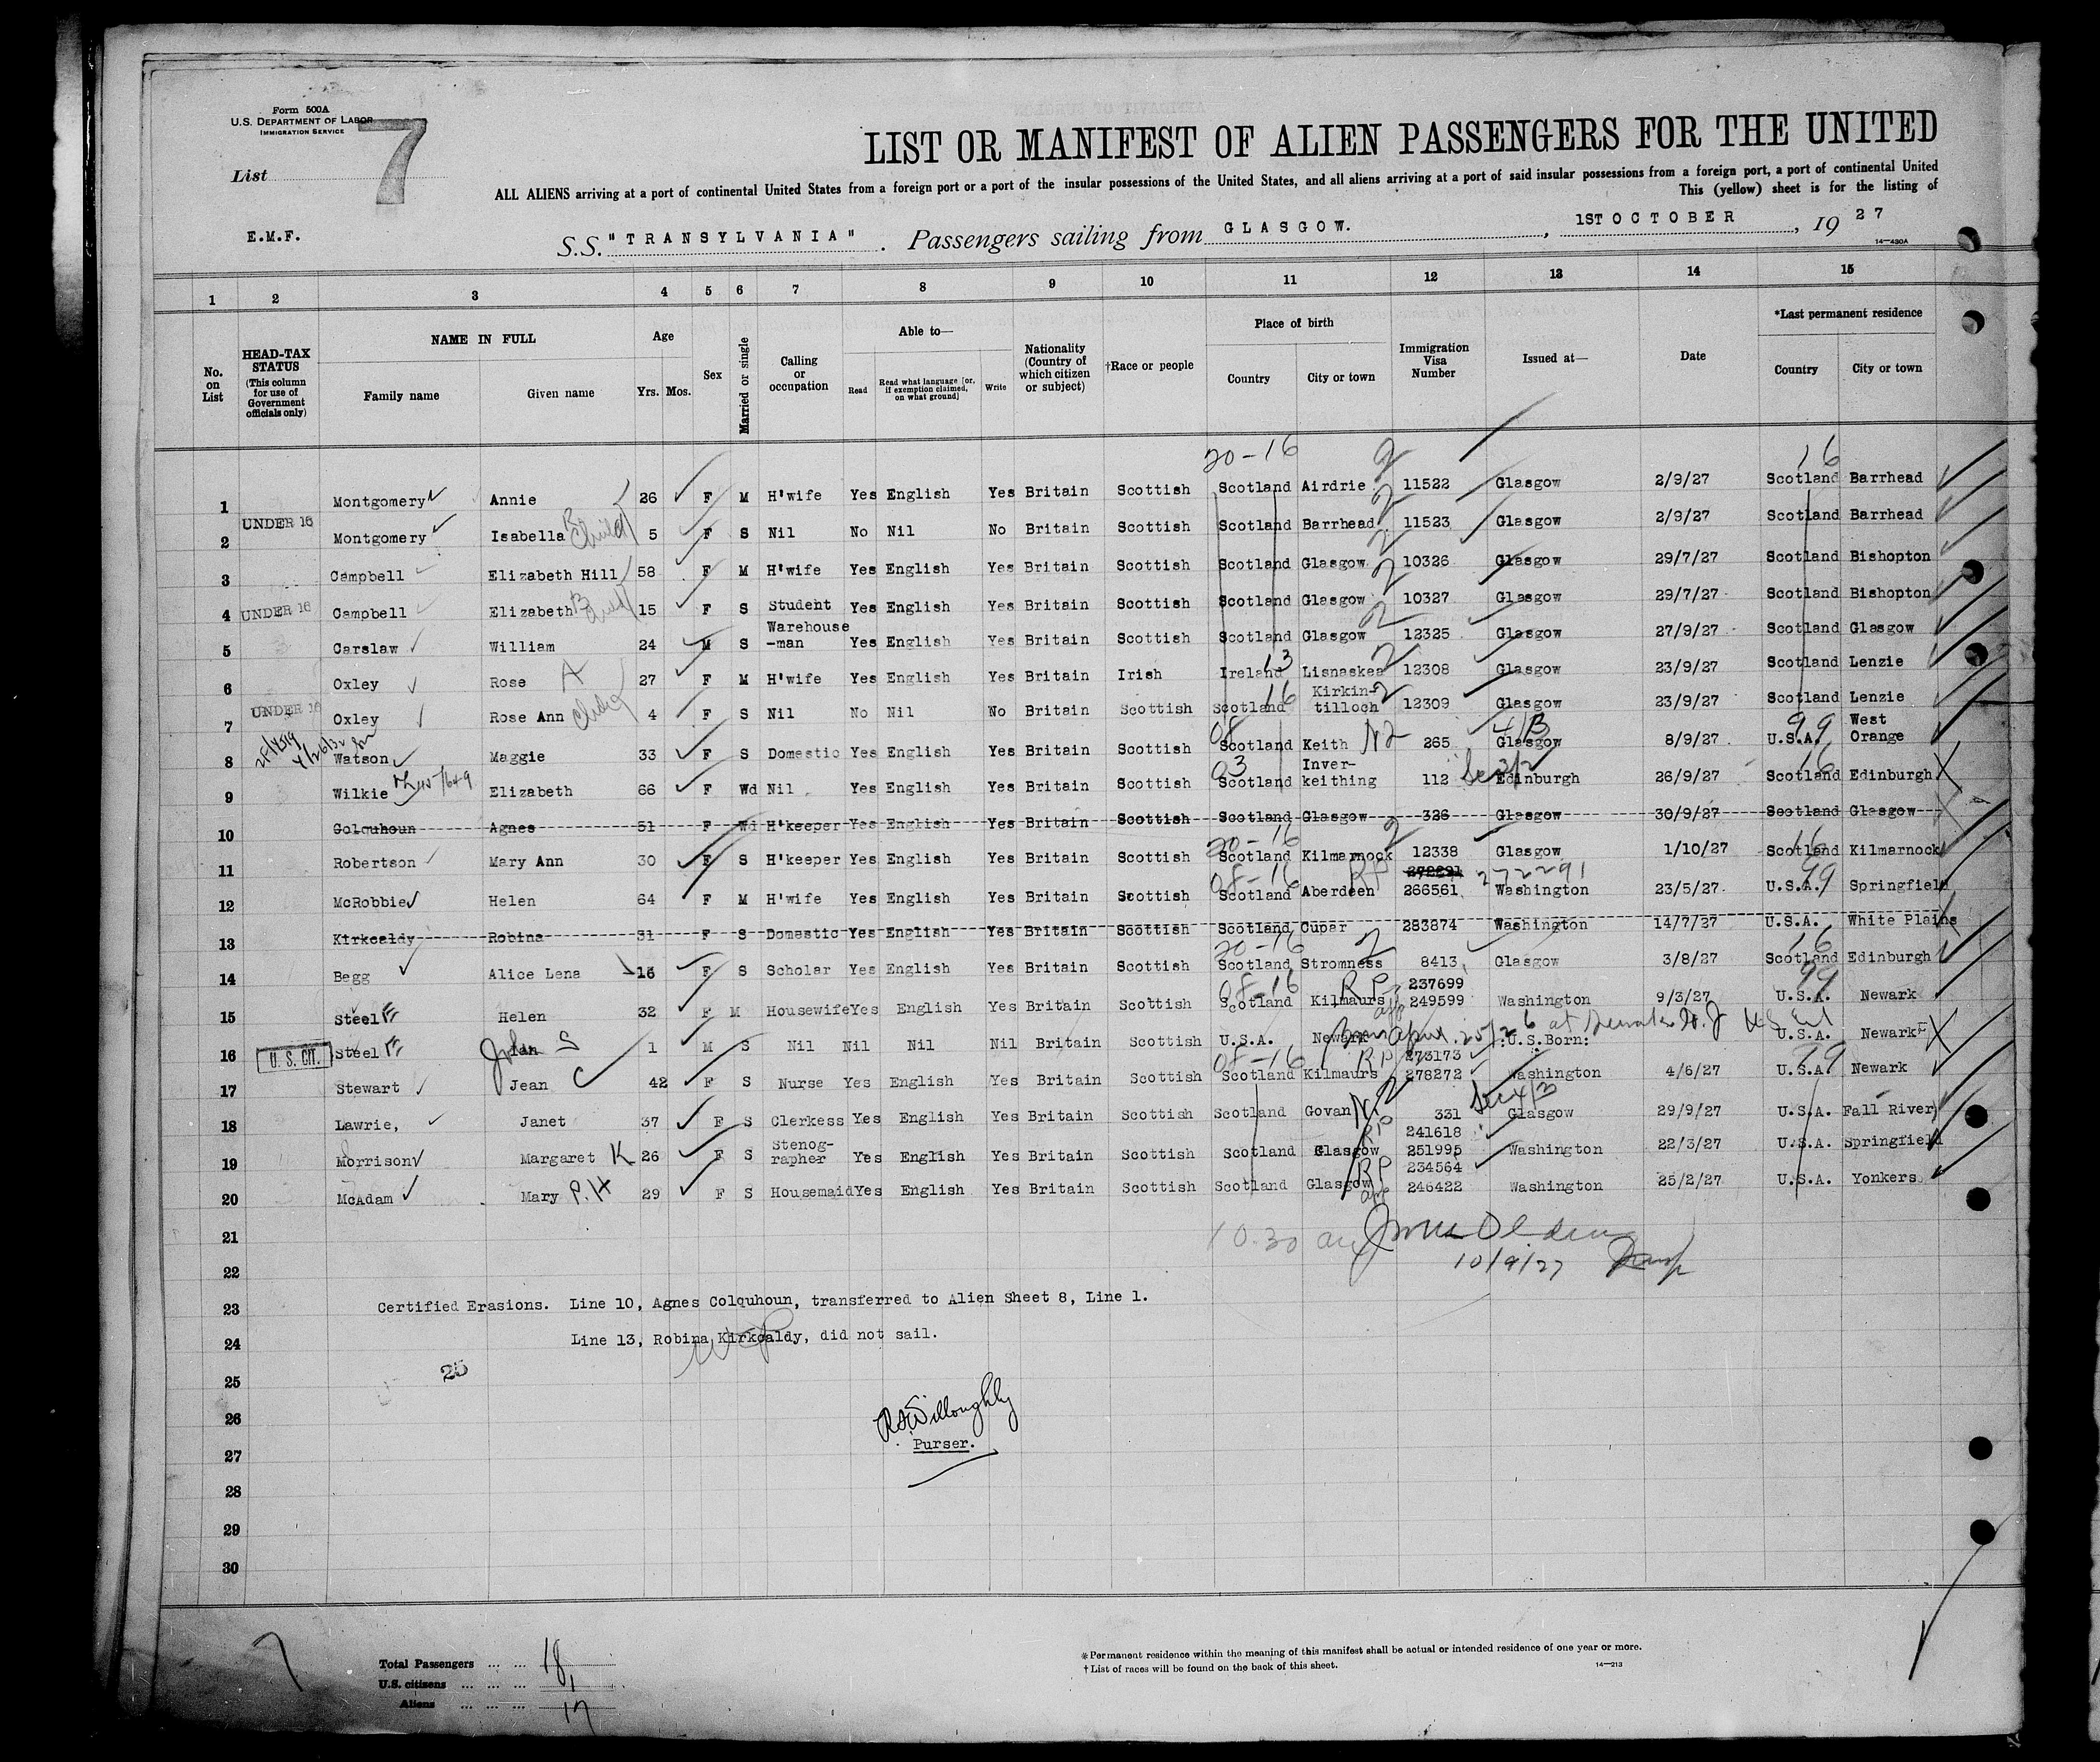 Form 500A
U.S. DEPARTMENT OF LABOR
IMMIGRATION SERVICE
List 7
LIST OR MANIFEST OF ALIEN PASSENGERS FOR THE UNITED
ALL ALIENS arriving at a port of continental United States from a foreign port or a port of the insular possessions of the United States, and all aliens arriving at a port of said insular possessions from a foreign port, a port of continental United
This (yellow) sheet is for the listing of
E.M.F.
S.S. "TRANSYLVANIA". Passengers sailing from GLASGOW. , 1ST OCTOBER , 19 27
14—430A
1 2 3 4 5 6 7 8 9 10 11 12 13 14 15
No. on List
HEAD-TAX STATUS (This column for use of Government officials only)
NAME IN FULL
Family name Given name
Age
Yrs. Mos.
Sex
Married or single
Calling or occupation
Able to—
Read Read what language [or, if exemption claimed, on what ground] Write
Nationality (Country of which citizen or subject)
†Race or people
Place of birth
Country City or town
Immigration Visa Number
Issued at—
Date
*Last permanent residence
Country City or town
20-16 2 16
1 Montgomery Annie 26 F M H'wife Yes English Yes Britain Scottish Scotland Airdrie 11522 Glasgow 2/9/27 Scotland Barrhead
2 UNDER 16 Montgomery Isabella B child 5 F S Nil No Nil No Britain Scottish Scotland Barrhead 2 11523 Glasgow 2/9/27 Scotland Barrhead
3 Campbell Elizabeth Hill 58 F M H'wife Yes English Yes Britain Scottish Scotland Glasgow 2 10326 Glasgow 29/7/27 Scotland Bishopton
4 UNDER 16 Campbell Elizabeth B child 15 F S Student Yes English Yes Britain Scottish Scotland Glasgow 2 10327 Glasgow 29/7/27 Scotland Bishopton
5 Carslaw William 24 M S Warehouse-man Yes English Yes Britain Scottish Scotland Glasgow 2 12325 Glasgow 27/9/27 Scotland Glasgow
6 Oxley Rose A 27 F M H'wife Yes English Yes Britain Irish Ireland 13 Lisnaskea 2 12308 Glasgow 23/9/27 Scotland Lenzie
7 UNDER 16 Oxley Rose Ann child 4 F S Nil No Nil No Britain Scottish Scotland 16 Kirkin-tilloch 2 12309 Glasgow 23/9/27 Scotland Lenzie
8 Watson Maggie 33 F S Domestic Yes English Yes Britain Scottish 08 Scotland Keith N2 265 4/B Glasgow 8/9/27 99 U.S.A. West Orange
9 Wilkie Elizabeth 66 F Wd Nil Yes English Yes Britain Scottish 03 Scotland Inver-keithing 112 Edinburgh 26/9/27 16 Scotland Edinburgh
10 Colquhoun Agnes 51 F Wd H'keeper Yes English Yes Britain Scottish Scotland Glasgow 326 Glasgow 30/9/27 Scotland Glasgow
11 Robertson Mary Ann 30 F S H'keeper Yes English Yes Britain Scottish 20-16 Scotland Kilmarnock 2 12338 Glasgow 1/10/27 16 Scotland Kilmarnock
12 McRobbie Helen 64 F M H'wife Yes English Yes Britain Scottish 08-16 Scotland Aberdeen RP 272291 266561 272291 Washington 23/5/27 99 U.S.A. Springfield
13 Kirkcaldy Robina 31 F S Domestic Yes English Yes Britain Scottish Scotland Cupar 283874 Washington 14/7/27 U.S.A. White Plains
14 Begg Alice Lena 16 F S Scholar Yes English Yes Britain Scottish 20-16 Scotland Stromness 2 8413 Glasgow 3/8/27 16 Scotland Edinburgh
15 Steel Helen 32 F M Housewife Yes English Yes Britain Scottish 08-16 Scotland Kilmaurs RP 237699 249599 Washington 9/3/27 99 U.S.A. Newark
16 U. S. CIT. Steel John Ian S 1 M S Nil Nil Nil Nil Britain Scottish U.S.A. Newark Born April 25/26 at Newark N.J. :U.S.Born: U.S.A. Newark
17 Stewart Jean C 42 F S Nurse Yes English Yes Britain Scottish 08-16 Scotland Kilmaurs RP 273173 278272 Washington 4/6/27 99 U.S.A. Newark
18 Lawrie, Janet 37 F S Clerkess Yes English Yes Britain Scottish Scotland Govan 331 Glasgow 29/9/27 U.S.A. Fall River
19 Morrison Margaret K 26 F S Stenog-rapher Yes English Yes Britain Scottish Scotland Glasgow RP 241618 251995 Washington 22/3/27 U.S.A. Springfield
20 McAdam Mary P.H 29 F S Housemaid Yes English Yes Britain Scottish Scotland Glasgow RP 234564 246422 Washington 25/2/27 U.S.A. Yonkers
21 10.30
22 10/9/27
23 Certified Erasions. Line 10, Agnes Colquhoun, transferred to Alien Sheet 8, Line 1.
24 Line 13, Robina Kirkcaldy, did not sail.
25
25
26 R.A. Willoughby
27 Purser.
28
29
30
7
Total Passengers ... ... 18
U.S. citizens ... ... ... 1
Aliens ... ... ... 17
*Permanent residence within the meaning of this manifest shall be actual or intended residence of one year or more.
†List of races will be found on the back of this sheet.
14—213